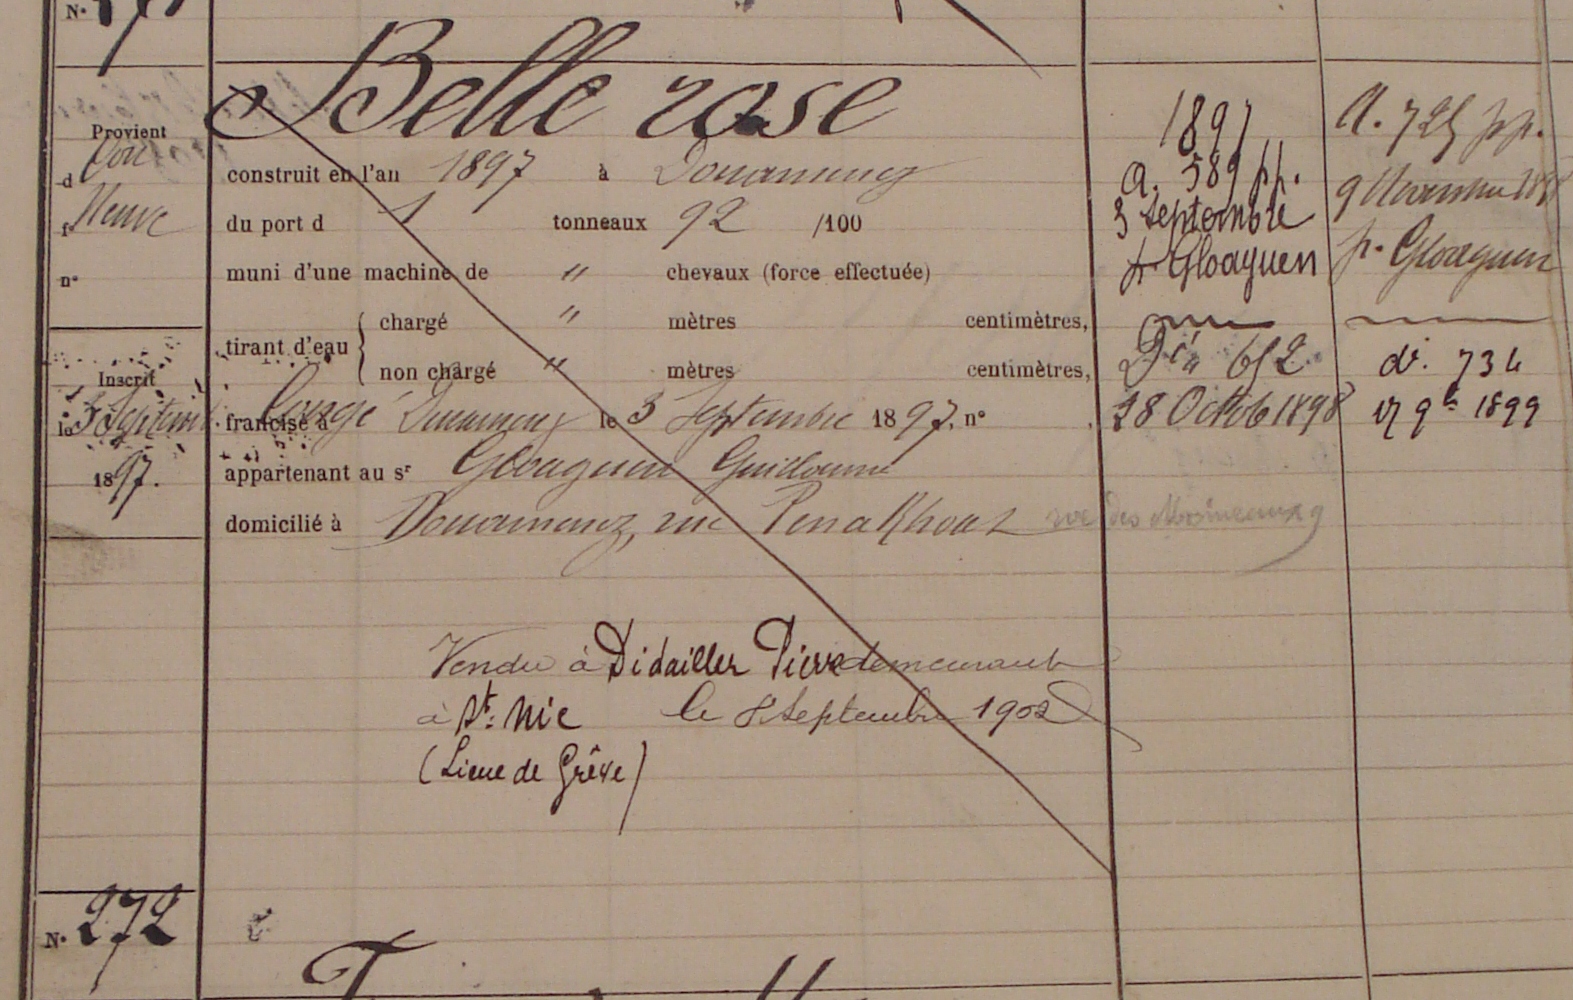 N°
Belle rose
Provient
d
f Neuve
n°
construit en l'an 1897 à Douarnenez
du port d 1 tonneaux 92 /100
muni d'une machine de " chevaux (force effectuée)
tirant d'eau
chargé " mètres centimètres,
non chargé " mètres centimètres,
Inscrit
le 3 Septemb.
1897.
francisé à Congé Douarnenez le 3 Septembre 1897. n° .
appartenant au sr Gloaguen Guillaume
domicilié à Douarnenez, rue
Vendu à Didailler Pierre demeurant
à St: Nic le 8 Septembre 1902
(Lieue de Grêve)
1897
A. 589 pp.
3 Septembre
p. Gloaguen
652
18 Octob 1898
A. 725 pp.
9 Novembre 1898
p. Gloaguen
di. 734
9b 1899
N° 272